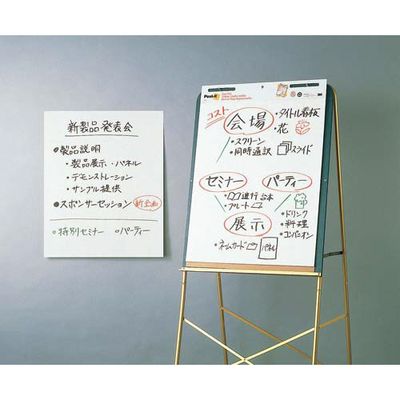 新製品発表会
●製品説明
・製品展示・パネル
・デモンストレーション
・サンプル提供
●スポンサーセッション 新企画
○特別セミナー ○パーティー
Post-it
コスト
会場
・タイトル看板
・花
・スクリーン
・同時通訳
スライド
セミナー
パーティー
・進行台本
・プレート
展示
・ドリンク
・料理
・コンパニオン
・ネームカード
パネル